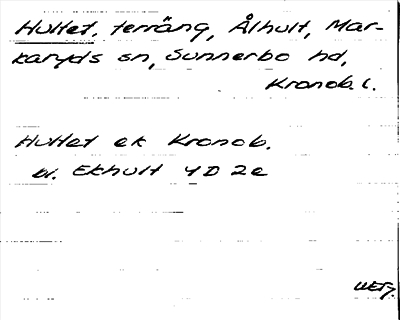 Hultet, terräng, Ålhult, Mar-
karyds sn, Sunnerbo hd,
Kronob. l.
Hultet ek Kronob.
bl. Ekhult 4D 2e